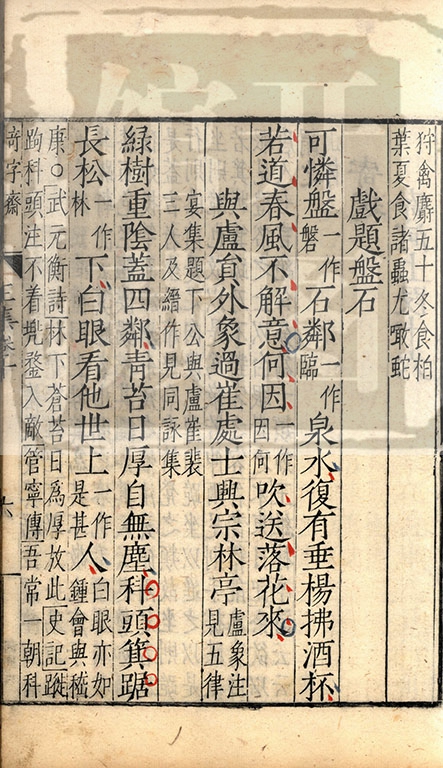 狩禽麝五十冬食柏
葉夏食諸蟲尤噉蛇
戲題盤石
可憐盤一作磐石鄰一作臨泉水復有垂楊拂酒杯
若道春風不解意何因一作因何吹送落花來
與盧貟外象過崔處士興宗林亭盧象注見五律
宴集題下公與盧崔裴
三人及縉作見同詠集
綠樹重陰蓋四鄰青苔日厚自無塵科頭箕踞
長松一作林下白眼看他世上一作是甚人白眼亦如鍾會與嵇
康○武元衡詩林下蒼苔日爲厚故此史記蹤
跔科頭注不着兠鍪入敵管寧傳吾常一朝科
竒字齋
六